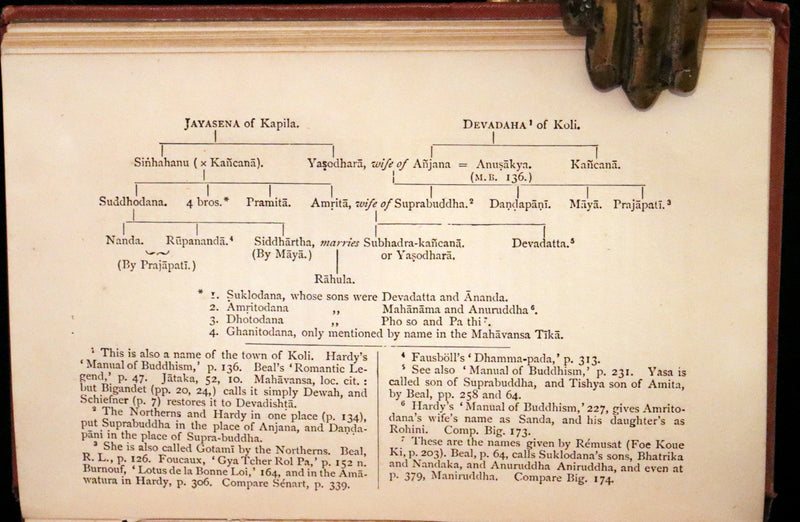 JAYASENA of Kapila. DEVADAHA¹ of Koli.
Siṅhahanu ( × Kañcanā). Yaṣodharā, wife of Añjana = Anuṣākya. Kañcanā.
(M.B. 136.)
Suddhodana. 4 bros.* Pramitā. Amṛitā, wife of Suprabuddha.² Daṇḍapāṇī. Māyā. Prajāpatī.³
Nanda. Rūpanandā.⁴ Siddhārtha, marries Subhadra-kañcanā. Devadatta.⁵
(By Māyā.) or Yaṣodharā.
(By Prajāpatī.)
Rāhula.
* 1. Ṣuklodana, whose sons were Devadatta and Ānanda.
2. Amṛitodana ,, Mahānāma and Anuruddha⁶.
3. Dhotodana ,, Pho so and Pa thi⁷.
4. Ghanitodana, only mentioned by name in the Mahāvansa Tīkā.
¹ This is also a name of the town of Koli. Hardy's
'Manual of Buddhism,' p. 136. Beal's 'Romantic Le-
gend,' p. 47. Jātaka, 52, 10. Mahāvansa, loc. cit. :
but Bigandet (pp. 20, 24,) calls it simply Dewah, and
Schiefner (p. 7) restores it to Devadishṭa.
² The Northerns and Hardy in one place (p. 134),
put Suprabuddha in the place of Anjana, and Daṇḍa-
pāni in the place of Supra-buddha.
³ She is also called Gotamī by the Northerns. Beal,
R. L., p. 126. Foucaux, 'Gya Tcher Rol Pa,' p. 152 n.
Burnouf, 'Lotus de la Bonne Loi,' 164, and in the Amā-
watura in Hardy, p. 306. Compare Sénart, p. 339.
⁴ Fausböll's 'Dhamma-pada,' p. 313.
⁵ See also 'Manual of Buddhism,' p. 231. Yasa is
called son of Suprabuddha, and Tishya son of Amita,
by Beal, pp. 258 and 64.
⁶ Hardy's 'Manual of Buddhism,' 227, gives Amrito-
dana's wife's name as Sanda, and his daughter's as
Rohini. Comp. Big. 173.
⁷ These are the names given by Rémusat (Foe Koue
Ki, p. 203). Beal, p. 64, calls Suklodana's sons, Bhatrika
and Nandaka, and Anuruddha Aniruddha, and even at
p. 379, Maniruddha. Compare Big. 174.